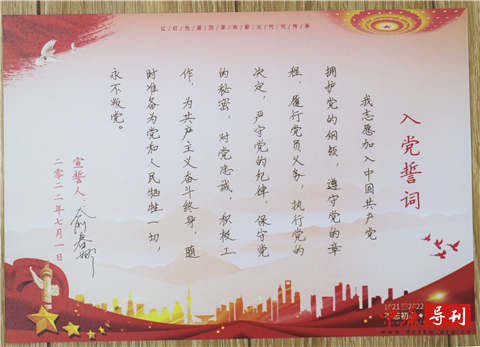 让/红/色/基/因/革/命/薪/火/代/代/传/承
入党誓词
我志愿加入中国共产党
拥护党的纲领，遵守党的章
程，履行党员义务，执行党的
决定，严守党的纪律，保守党
的秘密，对党忠诚，积极工
作，为共产主义奋斗终身，随
时准备为党和人民牺牲一切，
永不叛党。
宣誓人：俞春
二〇二二年七月一日
导刊